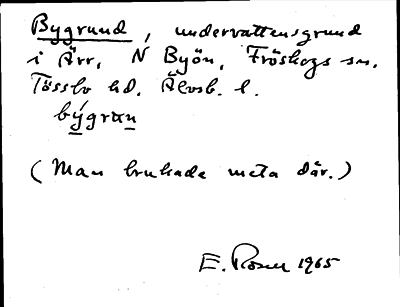 Bygrund, undervattensgrund
i Ärr, N Byön, Fröskogs sn.
Tössbo hd. Älvsb. l.
býgrun
(Man brukade meta där.)
E. Rosen 1965